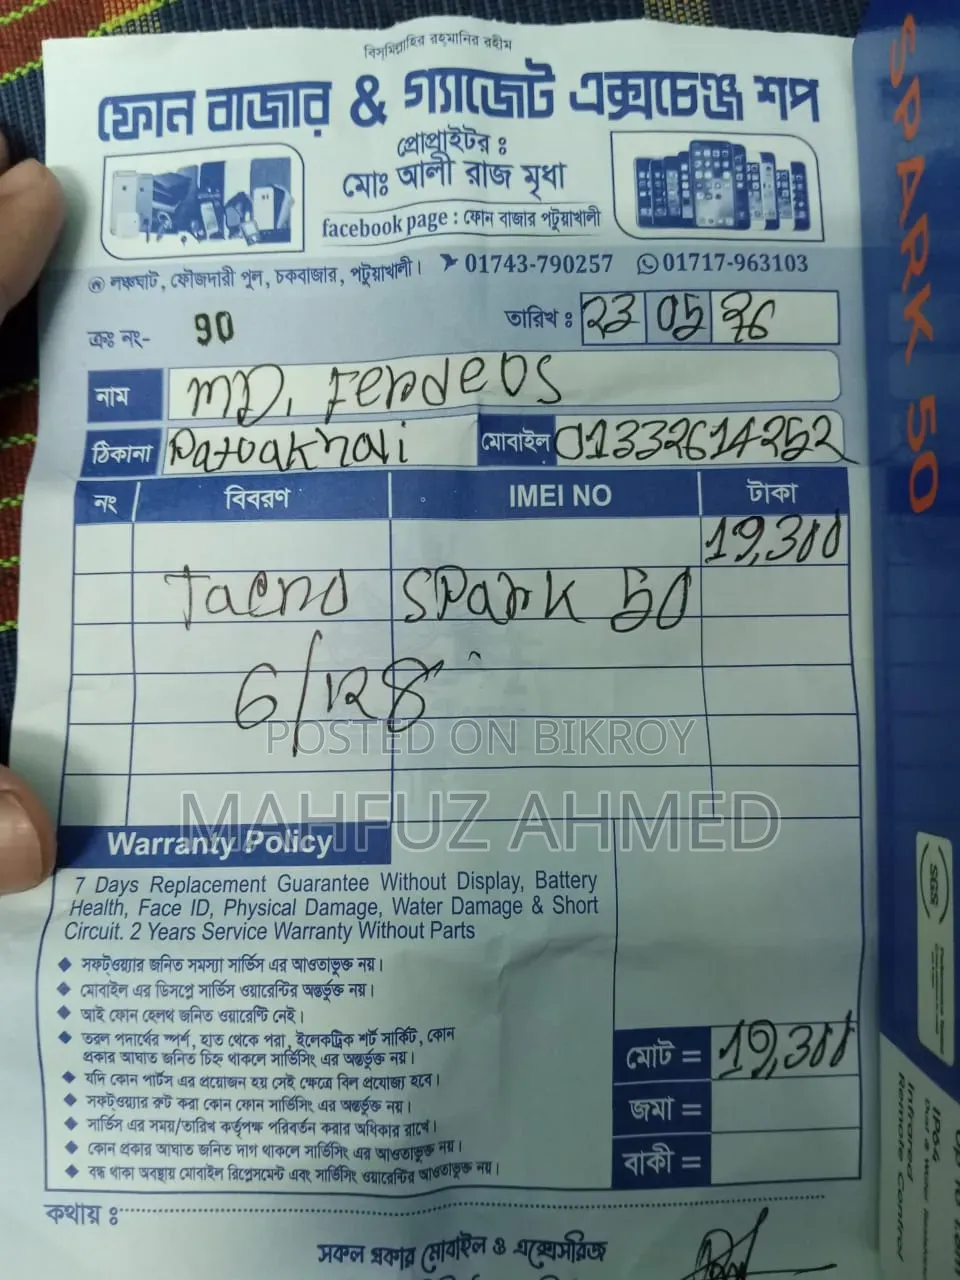 বিসমিল্লাহির রহমানির রহীম
ফোন বাজার & গ্যাজেট এক্সচেঞ্জ শপ
প্রোপ্রাইটর :
মোঃ আলী রাজ মৃধা
facebook page : ফোন বাজার পটুয়াখালী
লঞ্চঘাট, ফৌজদারী পুল, চকবাজার, পটুয়াখালী। 01743-790257 01717-963103
ক্রঃ নং- 90 তারিখ : 23 05 26
নাম MD. Ferdeos
ঠিকানা Patuakhali মোবাইল 01332614252
নং বিবরণ IMEI NO টাকা
19,300
Tacno SPark 50
6/128
POSTED ON BIKROY
MAHFUZ AHMED
Warranty Policy
7 Days Replacement Guarantee Without Display, Battery
Health, Face ID, Physical Damage, Water Damage & Short
Circuit. 2 Years Service Warranty Without Parts
সফট্ওয়্যার জনিত সমস্যা সার্ভিস এর আওতাভুক্ত নয়।
মোবাইল এর ডিসপ্লে সার্ভিস ওয়ারেন্টির অন্তর্ভুক্ত নয়।
আই ফোন হেলথ জনিত ওয়ারেন্টি নেই।
তরল পদার্থের স্পর্শ, হাত থেকে পরা, ইলেকট্রিক শর্ট সার্কিট, কোন
প্রকার আঘাত জনিত চিহ্ন থাকলে সার্ভিসিং এর অন্তর্ভুক্ত নয়।
যদি কোন পার্টস এর প্রয়োজন হয় সেই ক্ষেত্রে বিল প্রযোজ্য হবে।
সফট্ওয়্যার রুট করা কোন ফোন সার্ভিসিং এর অন্তর্ভুক্ত নয়।
সার্ভিস এর সময়/তারিখ কর্তৃপক্ষ পরিবর্তন করার অধিকার রাখে।
কোন প্রকার আঘাত জনিত দাগ থাকলে সার্ভিসিং এর আওতাভুক্ত নয়।
বন্ধ থাকা অবস্থায় মোবাইল রিপ্লেসমেন্ট এবং সার্ভিসিং ওয়ারেন্টির আওতাভুক্ত নয়।
মোট = 19,300
জমা =
বাকী =
কথায় :
সকল প্রকার মোবাইল ও এক্সেসরিজ
SPARK 50
SGS
IP64
Infrared
Remote Control